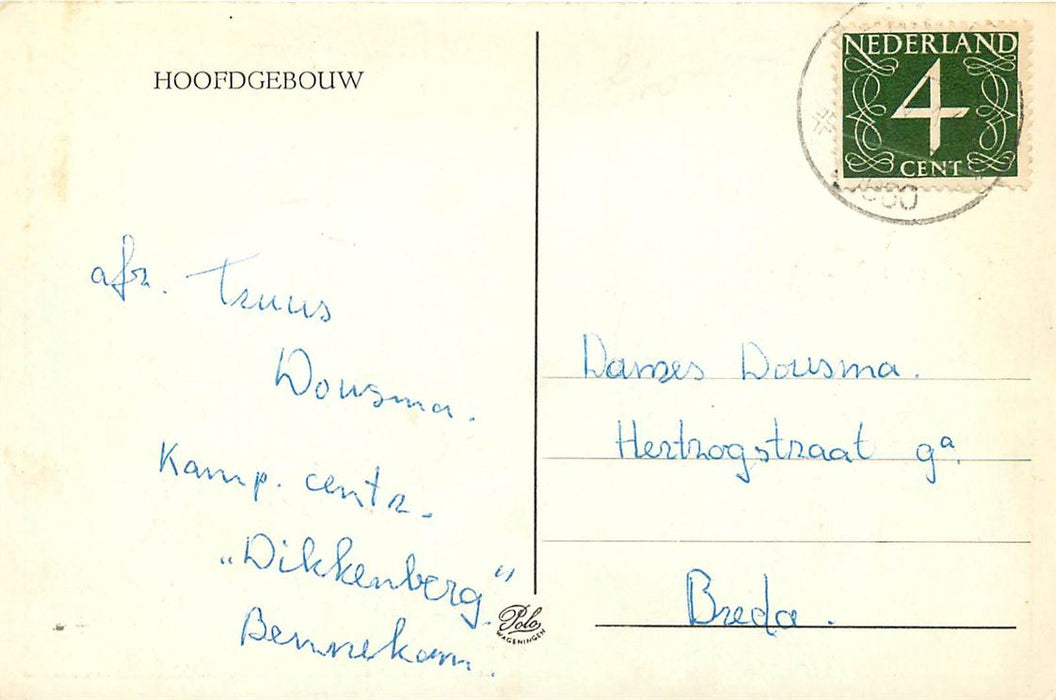 HOOFDGEBOUW
afz. Truus
Dousma.
Kamp. centr.
„Dikkenberg"
Bennekom.
Polo
WAGENINGEN
NEDERLAND
4
CENT
Dames Dousma.
Hertzogstraat 9a.
Breda.